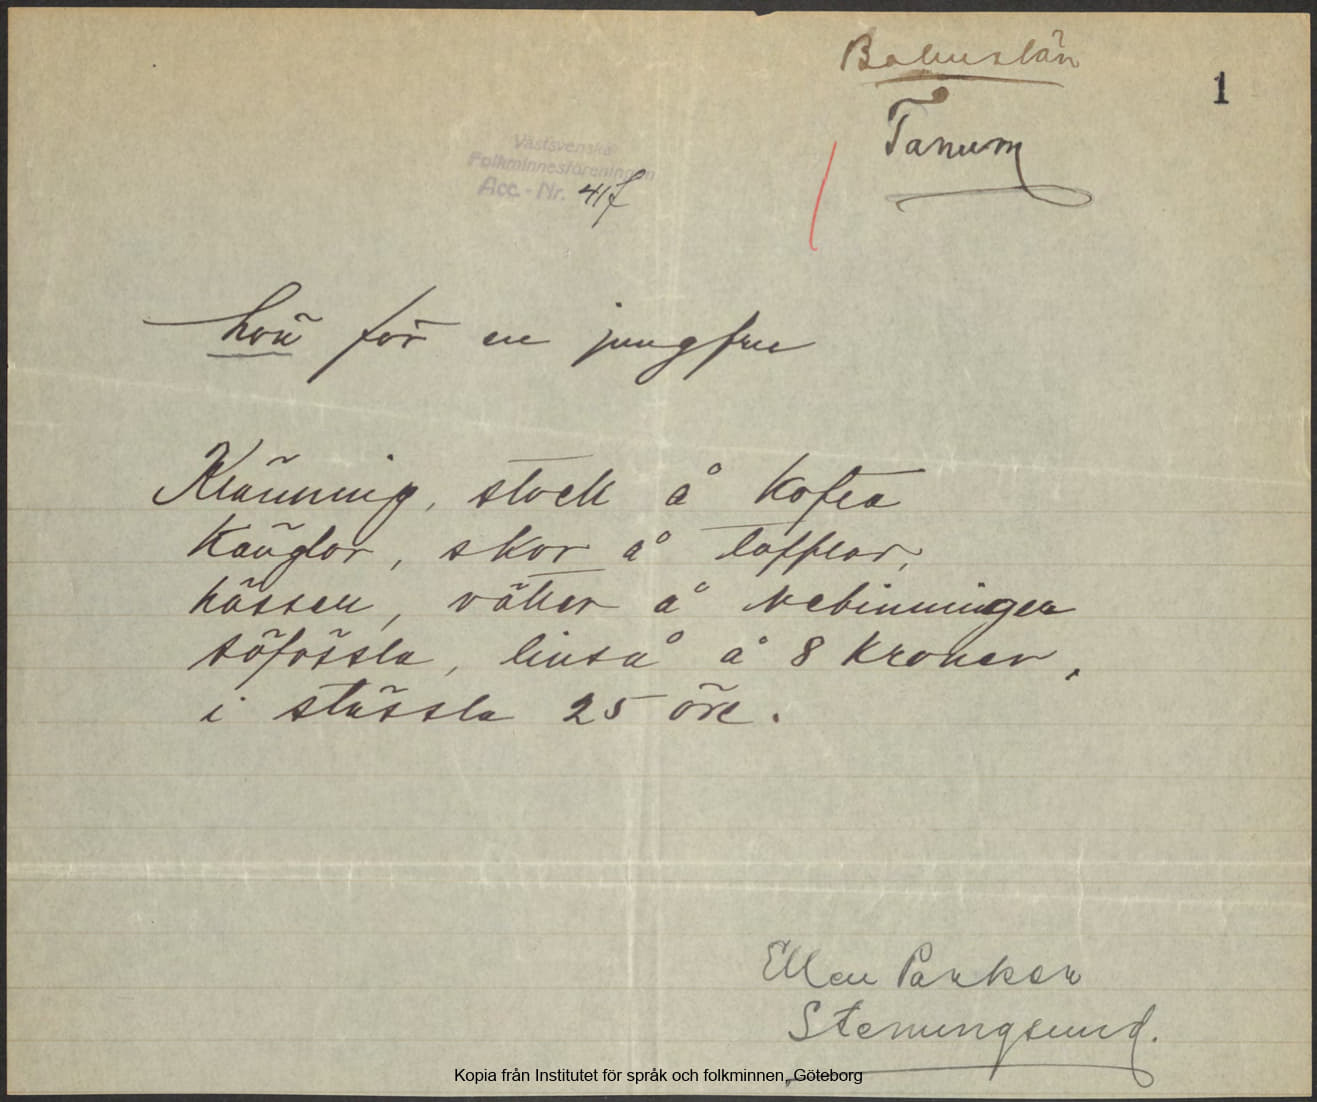 Bohuslän
1
Tanum
Västsvenska
Folkminnesföreningen
Acc. - Nr. 417
Lön för en jungfru
Klänning, stock å kofta
Känglor, skor å tofflor,
hässer, vätter å
söfössla, lintå å 8 kroner,
i stässla 25 öre.
Ellen Parkson
Stenungsund.
Kopia från Institutet för språk och folkminnen, Göteborg